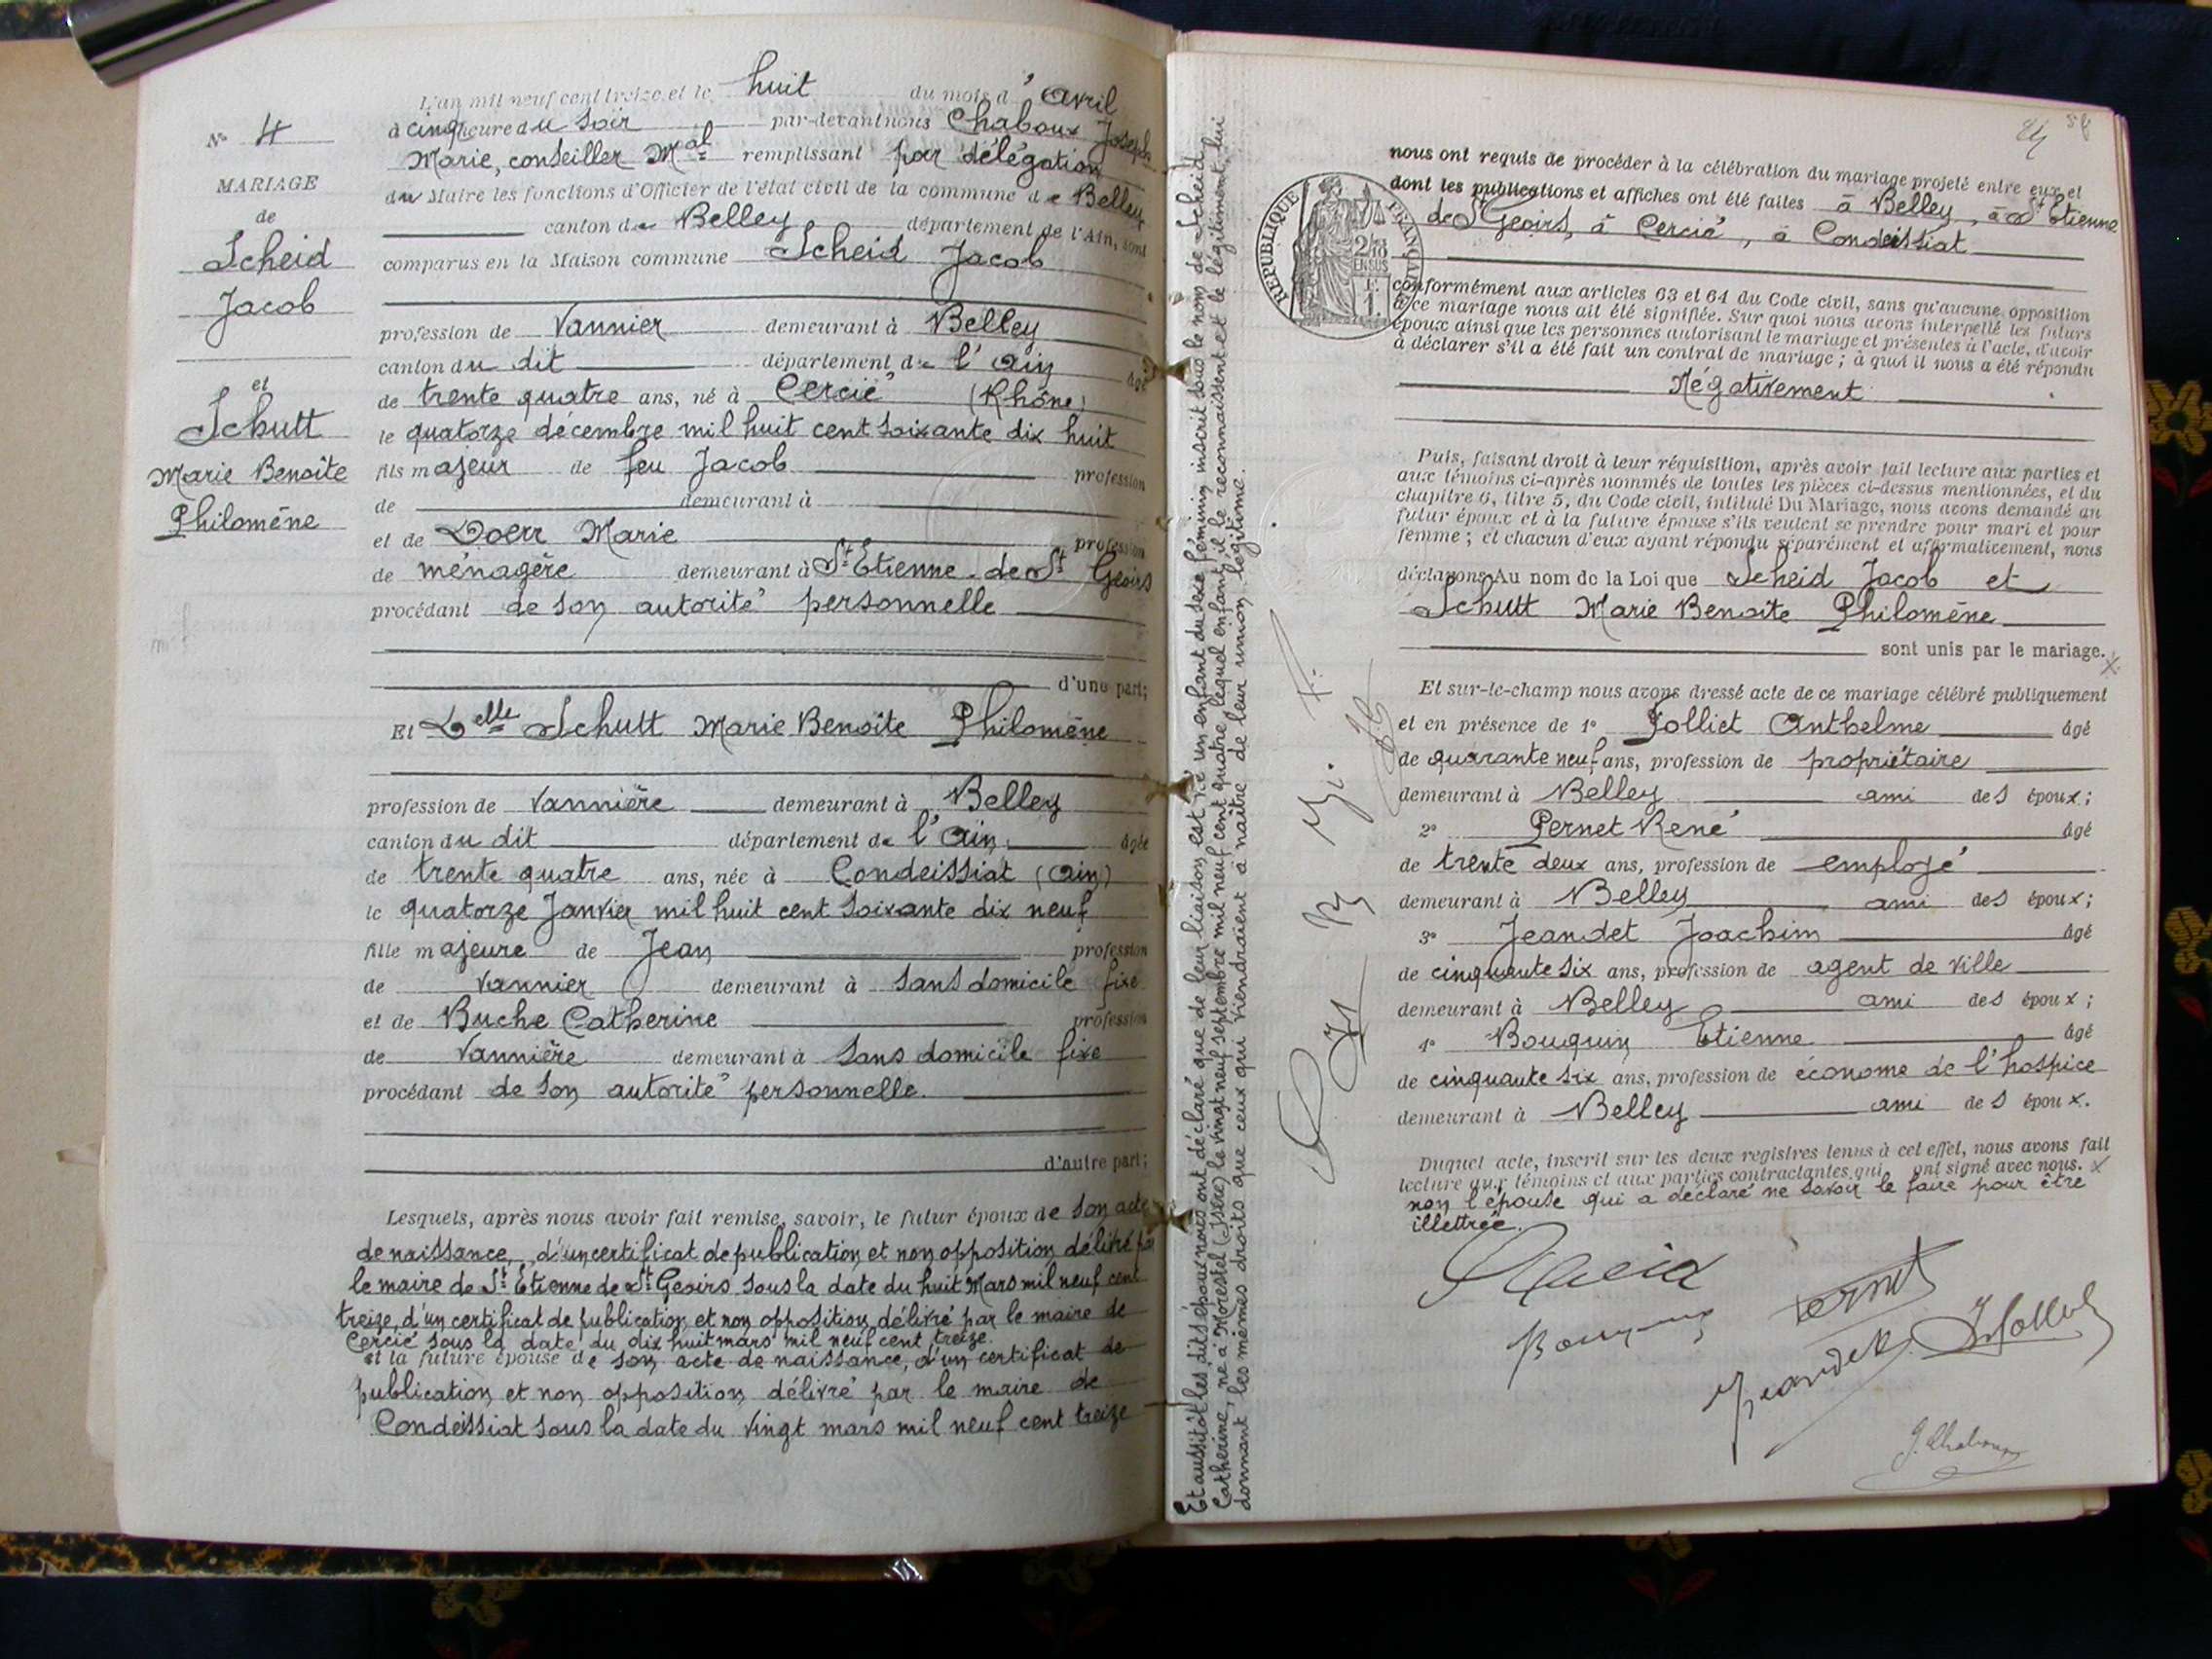 L'an mil neuf cent treize, et le huit du mois d'Avril
N° 4
à cinq heure du soir par-devant nous Chaboux Joseph
Marie, conseiller Mal remplissant par délégation
MARIAGE
du Maire les fonctions d'Officier de l'état civil de la commune de Belley
de
canton de Belley département de l'Ain, sont
Scheid
comparus en la Maison commune Scheid Jacob
Jacob
profession de Vannier demeurant à Belley
canton du dit département de l'Ain âgé
et
de trente quatre ans, né à Cercié (Rhône)
Schutt
le quatorze décembre mil huit cent soixante dix huit
Marie Benoite
fils majeur de feu Jacob profession
de demeurant à
Philomène
et de Doerr Marie profession
de ménagère demeurant à St Etienne de St Geoirs
procédant de son autorité personnelle
d'une part;
Et Delle Schutt Marie Benoite Philomène
profession de Vannière demeurant à Belley
canton du dit département de l'Ain, âgée
de trente quatre ans, née à Condeissiat (Ain)
le quatorze Janvier mil huit cent soixante dix neuf
fille majeure de Jean profession
de Vannier demeurant à sans domicile fixe
et de Buche Catherine profession
de Vannière demeurant à sans domicile fixe
procédant de son autorité personnelle.
d'autre part;
Lesquels, après nous avoir fait remise, savoir, le futur époux de son acte
de naissance, d'un certificat de publication et non opposition délivré par
le maire de St Etienne de St Geoirs sous la date du huit Mars mil neuf cent
treize, d'un certificat de publication et non opposition délivré par le maire de
Cercié sous la date du dix huit mars mil neuf cent treize.
et la future épouse de son acte de naissance, d'un certificat de
publication et non opposition délivré par le maire de
Condeissiat sous la date du vingt mars mil neuf cent treize
Et aussitôt les dits époux nous ont déclaré que de leur liaison est né un enfant du sexe féminin inscrit sous le nom de Scheid
Catherine, né à Morestel (Isère) le vingt neuf septembre mil neuf cent quatre lequel enfant il le reconnaissent et le légitiment, lui
donnant les mêmes droits que ceux qui viendraient à naître de leur union légitime.
nous ont requis de procéder à la célébration du mariage projeté entre eux et
dont les publications et affiches ont été faites à Belley, à St Etienne
de St Geoirs, à Cercié, à Condeissiat
REPUBLIQUE FRANÇAISE
conformément aux articles 63 et 64 du Code civil, sans qu'aucune opposition
à ce mariage nous ait été signifiée. Sur quoi nous avons interpellé les futurs
époux ainsi que les personnes autorisant le mariage et présentes à l'acte, d'avoir
à déclarer s'il a été fait un contrat de mariage; à quoi il nous a été répondu
Négativement
Puis, faisant droit à leur réquisition, après avoir fait lecture aux parties et
aux témoins ci-après nommés de toutes les pièces ci-dessus mentionnées, et du
chapitre 6, titre 5, du Code civil, intitulé Du Mariage, nous avons demandé au
futur époux et à la future épouse s'ils veulent se prendre pour mari et pour
femme; et chacun d'eux ayant répondu séparément et affirmativement, nous
déclarons Au nom de la Loi que Scheid Jacob et
Schutt Marie Benoite Philomène
sont unis par le mariage.
Et sur-le-champ nous avons dressé acte de ce mariage célébré publiquement
et en présence de 1° Jolliet Anthelme âgé
de quarante neuf ans, profession de propriétaire
demeurant à Belley ami des époux;
2° Pernet René âgé
de trente deux ans, profession de employé
demeurant à Belley ami des époux;
3° Jeandet Joachim âgé
de cinquante six ans, profession de agent de ville
demeurant à Belley ami des époux;
4° Bouquin Etienne âgé
de cinquante six ans, profession de économe de l'hospice
demeurant à Belley ami des époux.
Duquel acte, inscrit sur les deux registres tenus à cet effet, nous avons fait
lecture aux témoins et aux parties contractantes qui ont signé avec nous.
non l'épouse qui a déclaré ne savoir le faire pour être
illettrée.
Scheid
Pernet
Bouquin
Jeandet
J. Chaboux